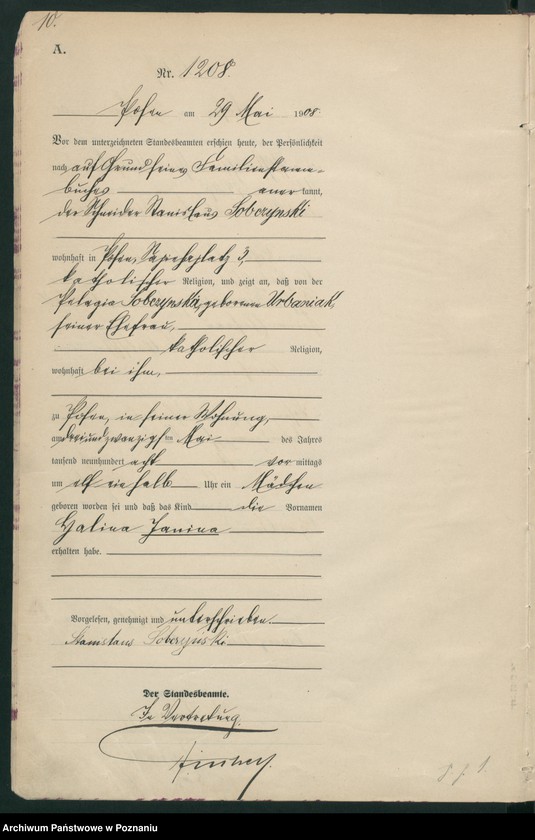 10.
A.
Nr. 1208.
Posen am 29 Mai 1908.
Vor dem unterzeichneten Standesbeamten erschien heute, der Persönlichkeit
nach auf Grund seines Familienstamm-
buches anerkannt,
der Schneider Stanislaus Sobczynski
wohnhaft in Posen, Sapiehaplatz 3,
katholischer Religion, und zeigt an, daß von der
Pelagia Sobczynski, geborenen Urbaniak,
seiner Ehefrau,
katholischer Religion,
wohnhaft bei ihm,
zu Posen, in seiner Wohnung,
am dreiundzwanzigsten Mai des Jahres
tausend neunhundert acht vor mittags
um elf einhalb Uhr ein Mädchen
geboren worden sei und daß das Kind die Vornamen
Halina Janina
erhalten habe.
Vorgelesen, genehmigt und unterschrieben.
Stanislaus Sobczyński
Der Standesbeamte.
In Vertretung.
Archiwum Państwowe w Poznaniu